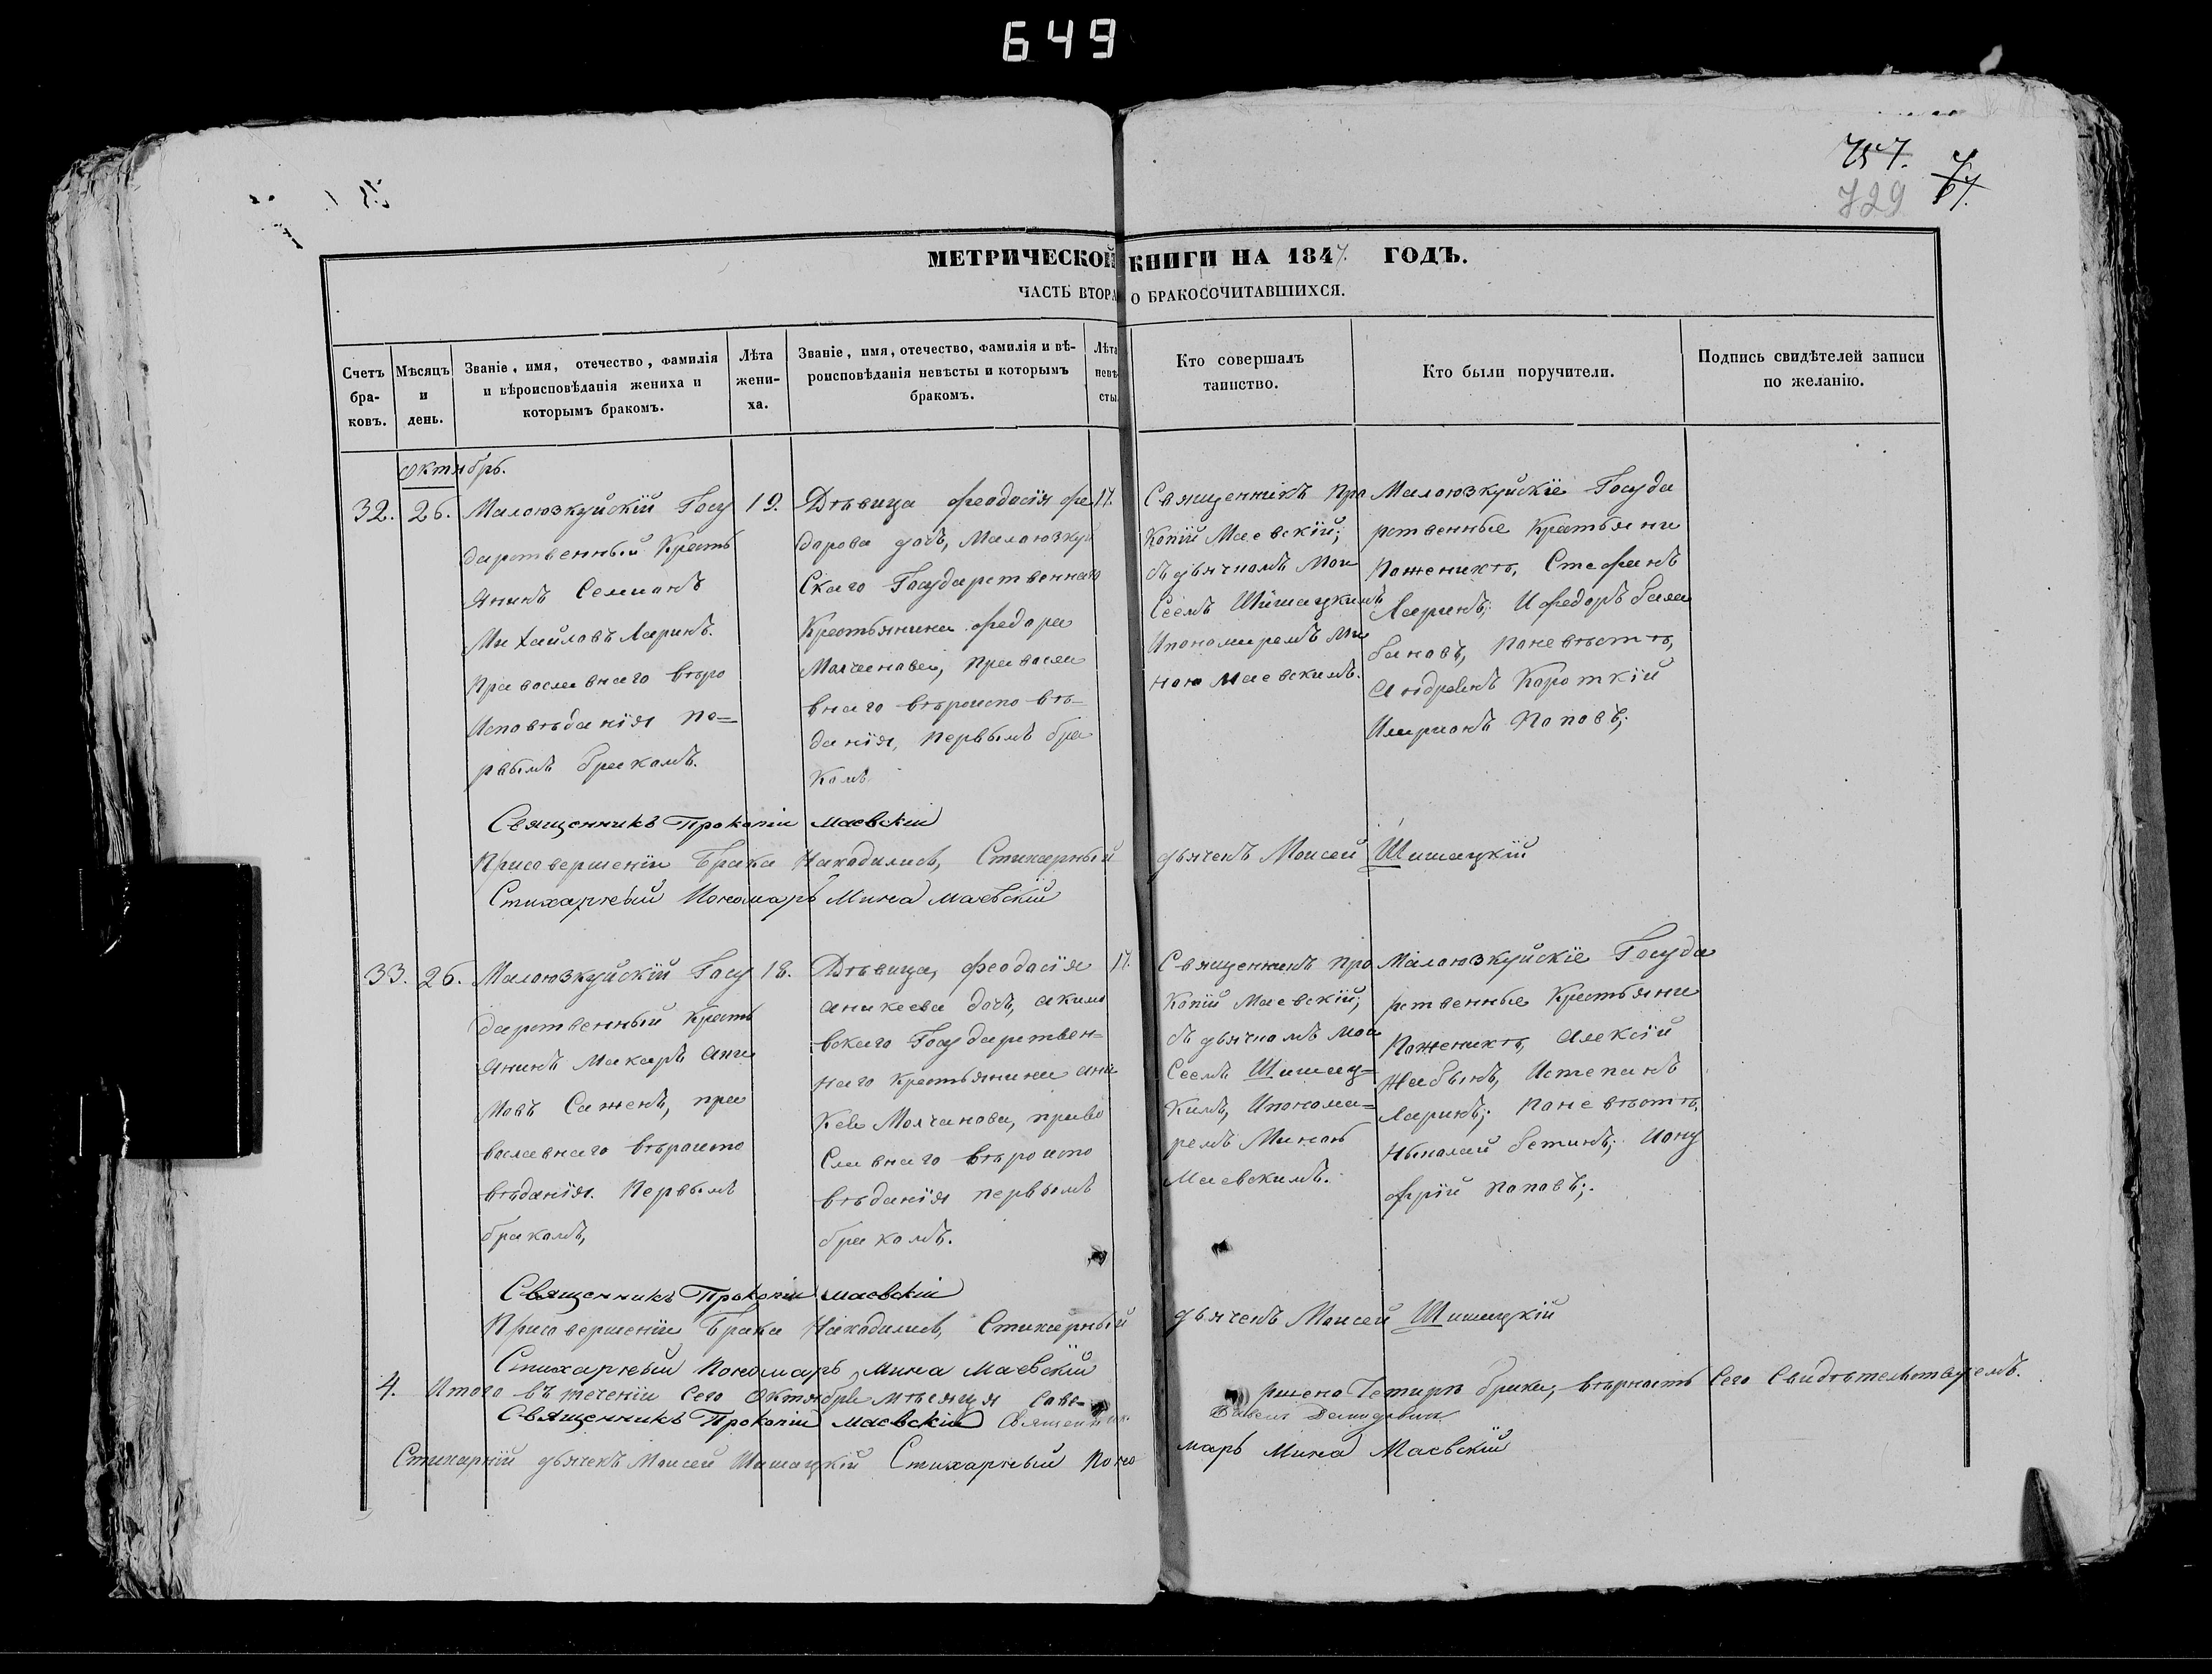 649
757.
729
67.
МЕТРИЧЕСКОЙ КНИГИ НА 1847. ГОДЪ.
ЧАСТЬ ВТОРА О БРАКОСОЧИТАВШИХСЯ.
Счетъ
бра-
ковъ.
Мѣсяцъ
и
день.
Званіе, имя, отечество, фамилія
и вѣроисповѣданія жениха и
которымъ бракомъ.
Лѣта
жени-
ха.
Званіе, имя, отечество, фамилія и вѣ-
роисповѣданія невѣсты и которымъ
бракомъ.
Лѣта
невѣ
сты.
Кто совершалъ
таинство.
Кто были поручители.
Подпись свидѣтелей записи
по желанію.
Октябрь.
32.
26.
Малоюзкуйскій Госу
дарственный Кресть
янинъ Семионъ
Михайловъ Ларинъ.
Православнаго вѣро
Исповѣданія пе=
рвымъ бракомъ.
19.
Дѣвица феодосія фе
дорова дочь, Малоюзкуй
Скаго Государственнаго
Крестьянина федора
Молчанова, правосла
внаго вѣроиспо вѣ=
данія, первымъ бра
комъ
17.
Священникъ Про
копій Маевскій;
съ дьячкомъ Мои
Сеемъ Шишацкимъ
Ипономаремъ Ми
ною Маевскимъ.
Малоюзкуйскіе Госуда
рственные Крестьяни
Поженихѣ, Стефанъ
Ларинъ; Ифедоръ Бала
бановъ, Поневѣстѣ,
Андреянъ Короткій
Иларионъ Поповъ;
Священникъ Прокопій Маевскій
Присовершеніи Брака Находились, Стихарный дьячекъ Моисей Шишацкій
Стихарный Пономарь Мина Маевскій
33.
26.
Малоюзкуйскій Госу
дарственный Кресть
янинъ Макаръ
мовъ Саженъ, пра
вославнаго вѣроиспо
вѣданія. Первымъ
бракомъ,
18.
Дѣвица, феодосія
аникеева дочь, акима
вскаго Государствен=
наго Крестьянина ани
Кея Молчанова, право
Славнаго Вѣроиспо
вѣданія первымъ
бракомъ.
17.
Священникъ про
копій Маевскій;
съ дьячкомъ Мои
Сеемъ Шишац=
кимъ, Ипонома=
ремъ Миною
Маевскимъ.
Малоюзкуйскіе Госуда
рственные Крестьяни
Поженихѣ, Алексій
Жабынъ, Истепанъ
Ларинъ; Поневѣстѣ,
Николай Бетинъ; Иону
фрій Поповъ;.
Священникъ Прокопій Маевскій
Присовершеніи Брака Находились, Стихарный дьячекъ Моисей Шишацкій
Стихарный Пономарь, Мина Маевскій
4. Итого въ теченіи Сего Октября мѣсяця Сове= ршено Четырѣ брака; вѣрность Сего Свидѣтельствуемъ.
Священникъ Прокопій Маевскій Священникъ
Стихарній дьячекъ Моисей Шишацкій Стихарный Поно марь Мина Маевскій